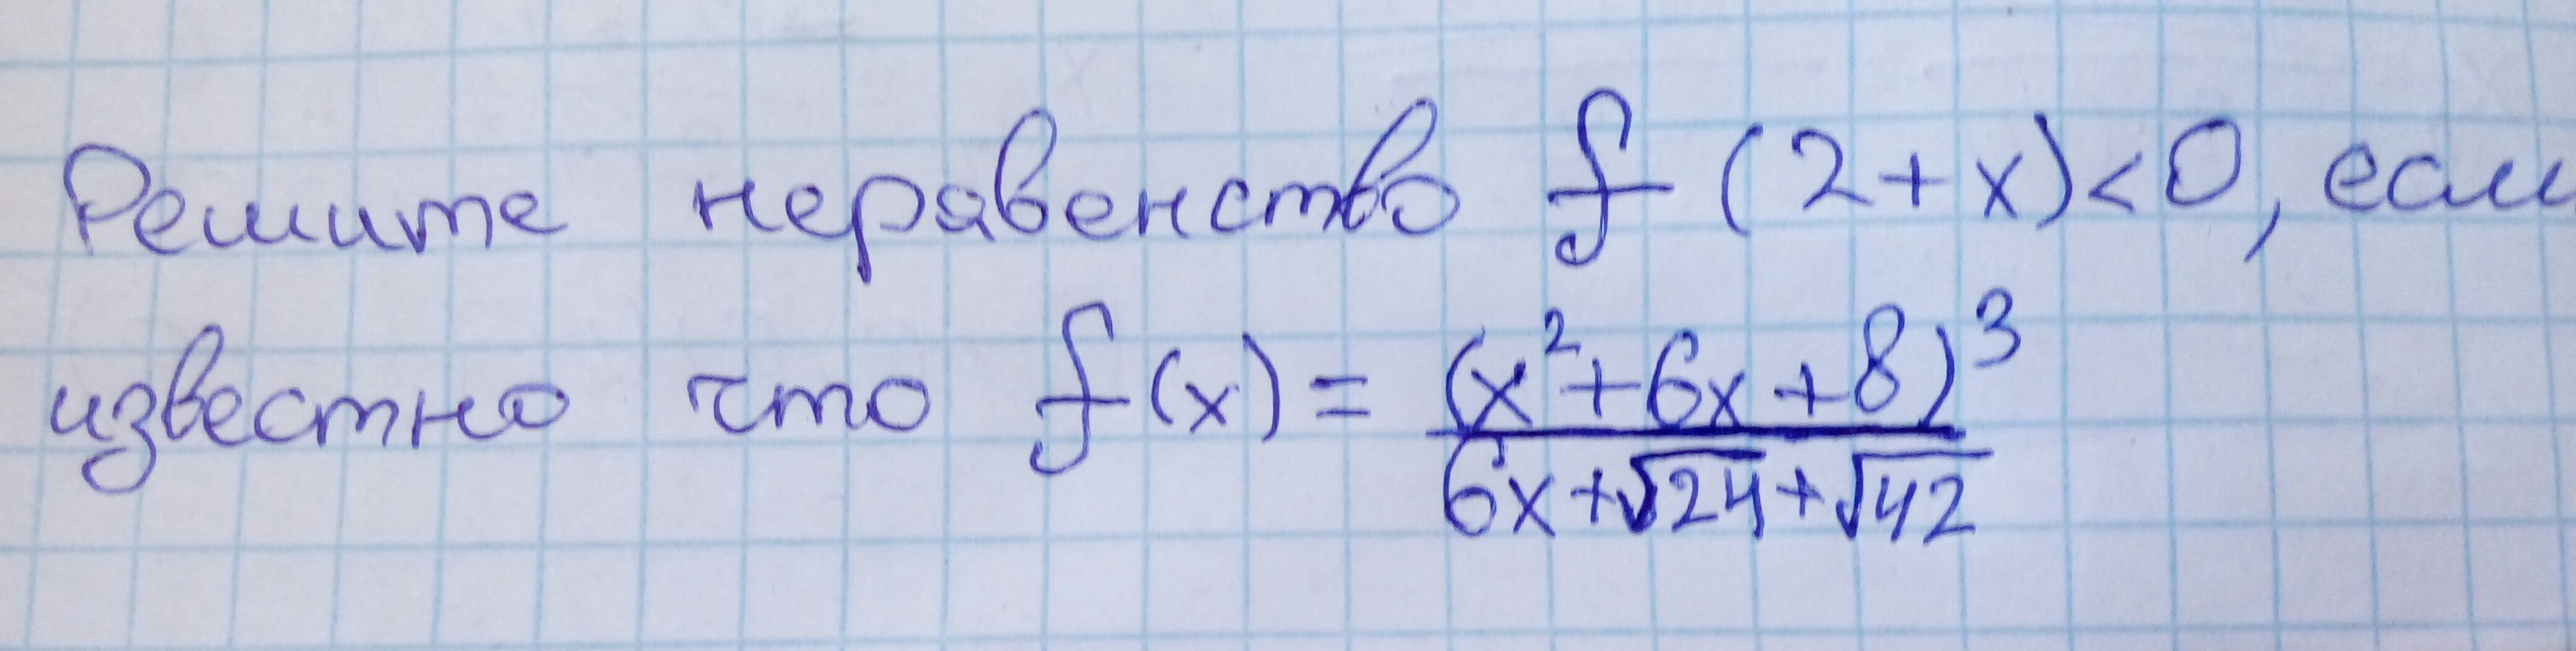 Решите неравенство f (2+x)<0, если
известно что f(x) = (x²+6x+8)³ / (6x+√24+√42)